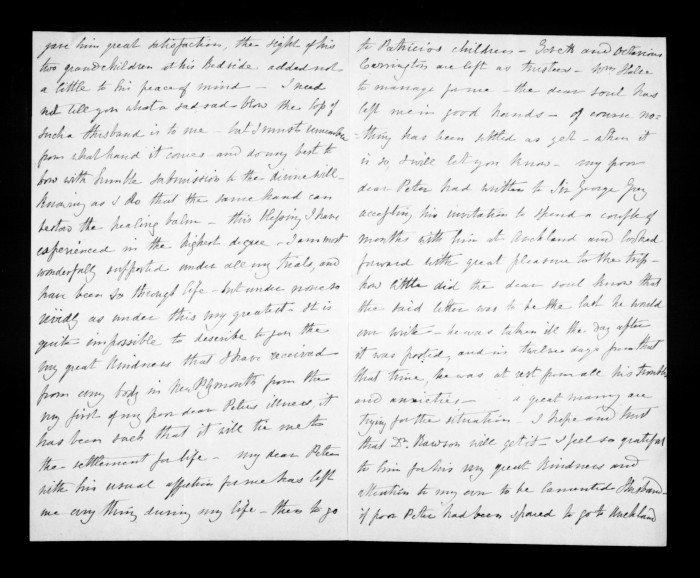 gave him great satisfaction, the sight of his
two grandchildren at his Bedside added not
a little to his peace of mind - I need
not tell you what a sad sad blow the loss of
such a Husband is to me - but I must remember
from what hand it comes and do my best to
bow with humble submission to the divine will -
Knowing as I do that the same hand can
bestow the healing balm - this blessing I have
experienced in the highest degree - I am most
wonderfully supported under all my trials, and
have been so through life - but under none so
vividly as under this my greatest - It is
quite impossible to describe to you the
very great Kindness that I have received
from every body in New Plymouth from the
very first of my poor dear Peters illness, it
has been such that it will tie me to
the settlement for life - my dear Peter
with his usual affection for me has left
me every thing during my life - then to go
to Patricios children - Josiah and Octavius
Carrington are left as trustees - Wm Halse
to manage for me - the dear soul has
left me in good hands - of course no-
-thing has been settled as yet - when it
is so, I will let you know - my poor
dear Peter had written to Sir George Grey
accepting his invitation to spend a couple of
months with him at Auckland and looked
forward with great pleasure to the trip -
how little did the dear soul know that
the said letter was to be the last he would
ever write - he was taken ill the day after
it was posted, and in twelve days from that
that time, he was at rest from all his troubles
and anxieties - a great many are
trying for the situation - I hope and trust
that Dr. Rawson will get it - I feel so grateful
to him for his very great Kindness and
attention to my ever to be lamented Husband -
if poor Peter had been spared to go to Auckland